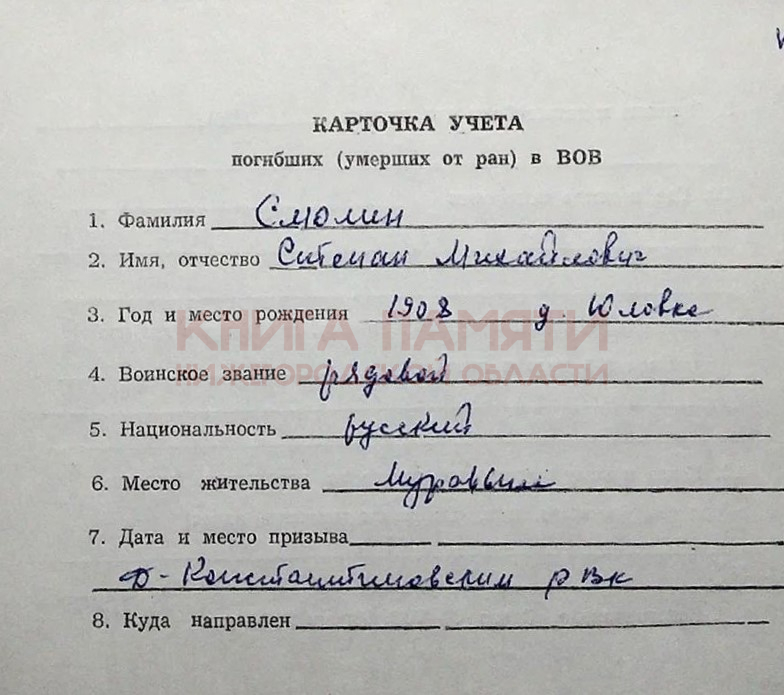 КАРТОЧКА УЧЕТА
погибших (умерших от ран) в ВОВ
1. Фамилия Смолин
2. Имя, отчество Михайлович
3. Год и место рождения 1908 д. Юловка
КНИГА ПАМЯТИ
НИЖЕГОРОДСКОЙ ОБЛАСТИ
4. Воинское звание рядовой
5. Национальность русский
6. Место жительства
7. Дата и место призыва
Д-Константиновским РВК
8. Куда направлен